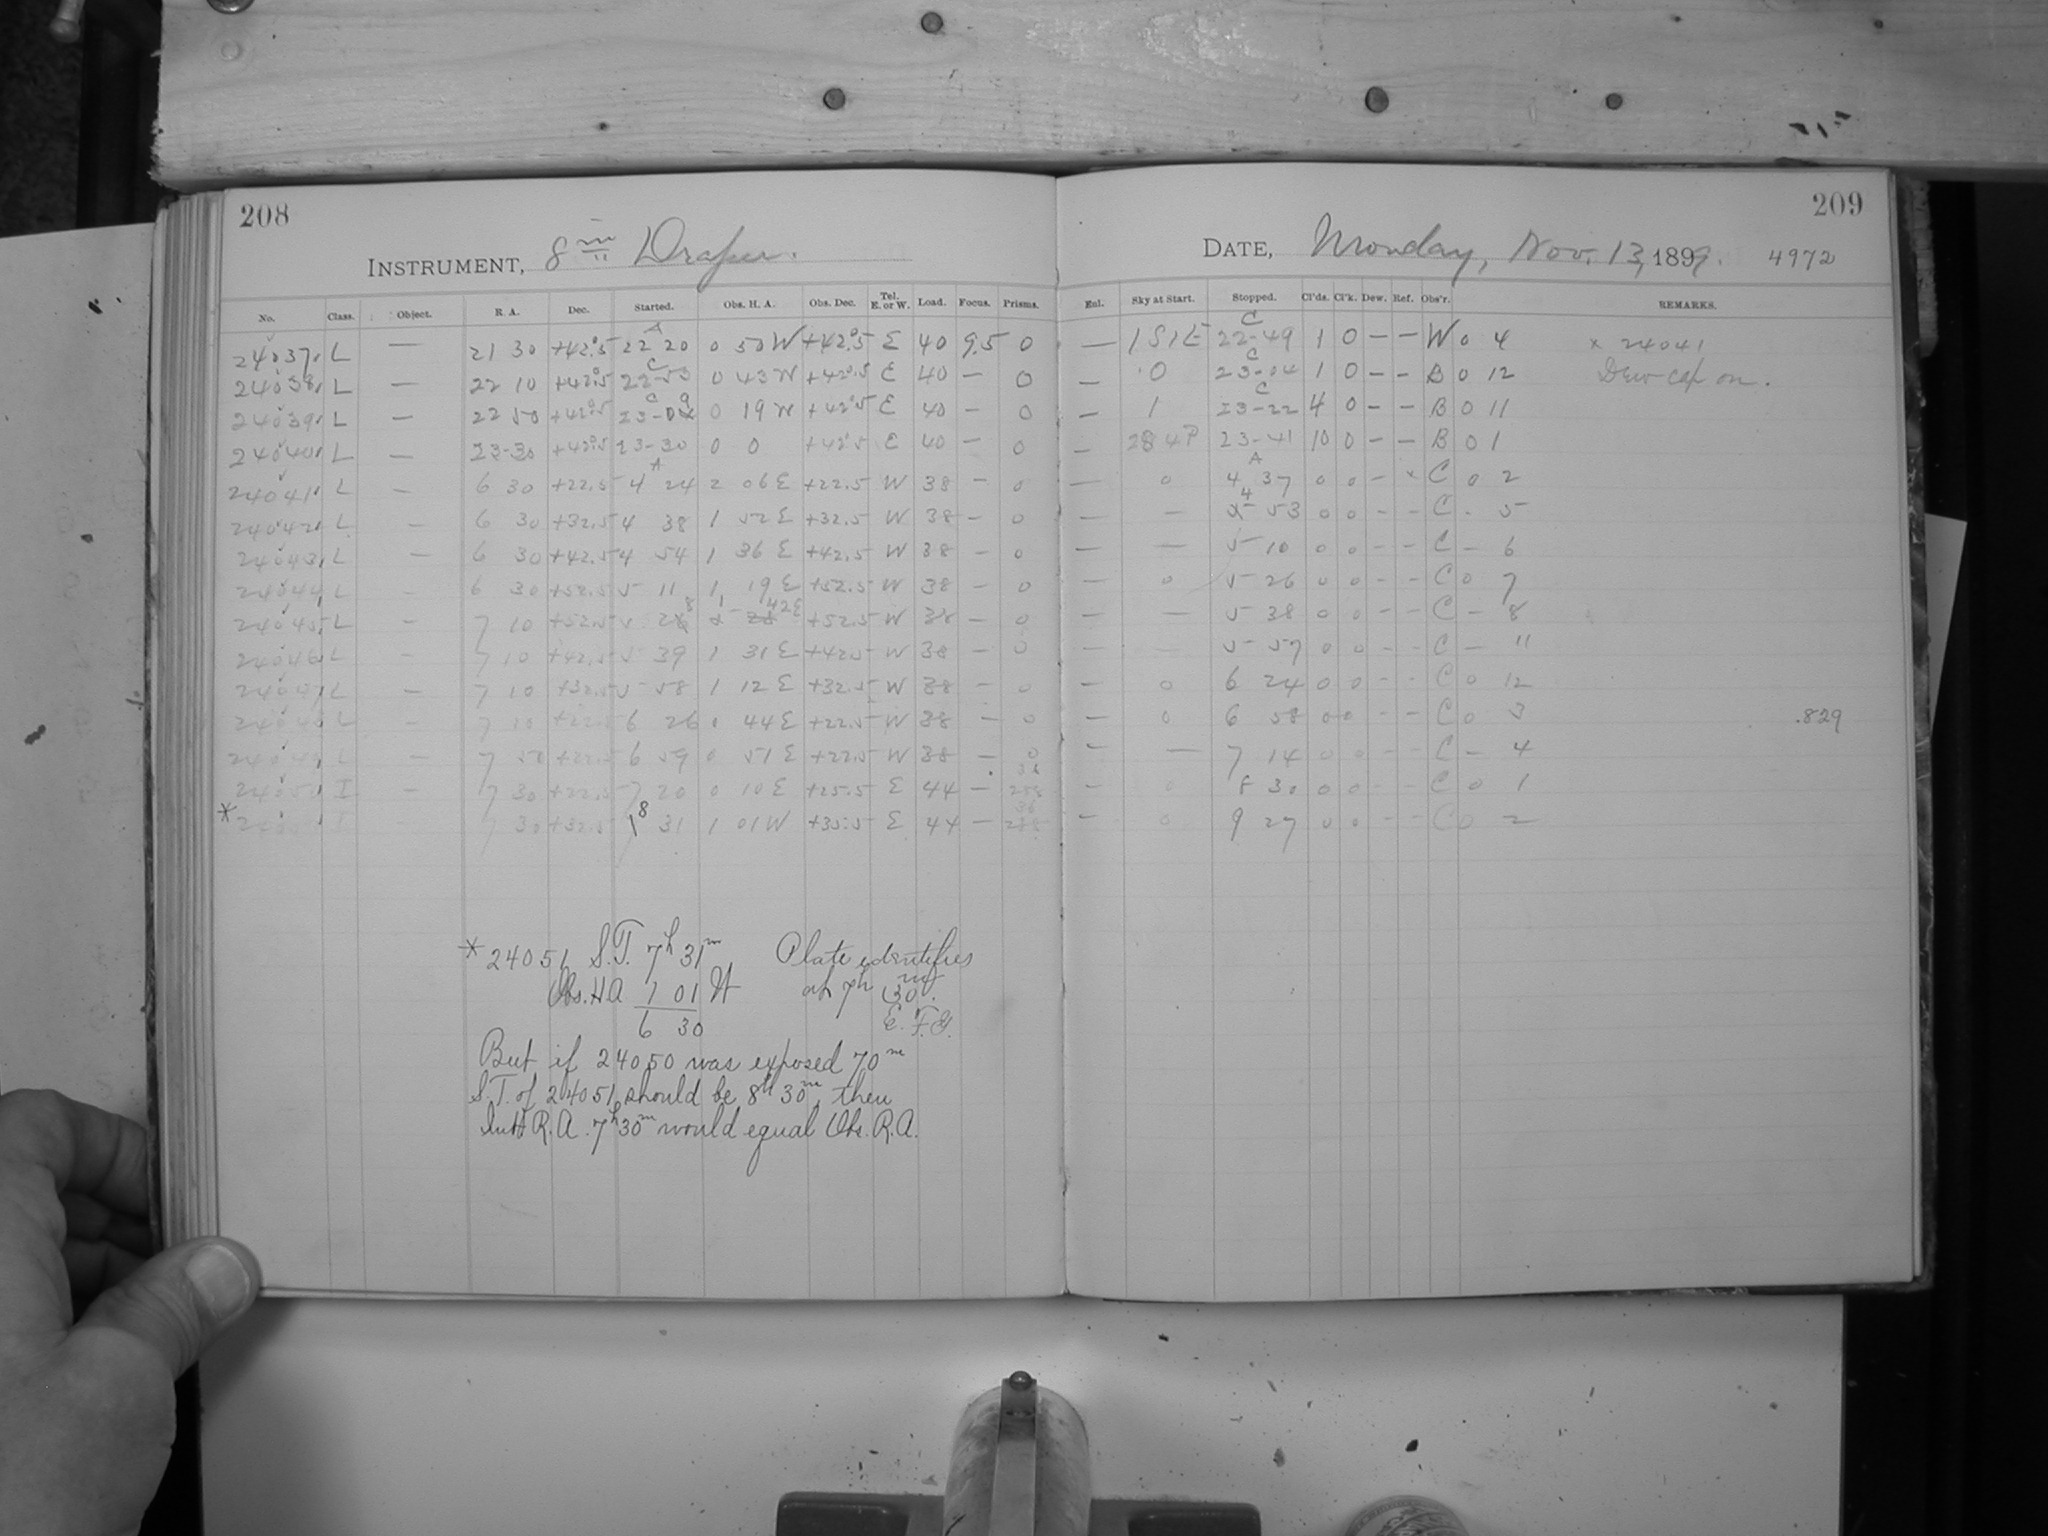 208
209
INSTRUMENT, 8 in Draper.
DATE, Monday, Nov. 13, 1899. 4972
No. Class. Object. R. A. Dec. Started. Obs. H. A. Obs. Dec. Tel. E. or W. Load. Focus. Prisms. Enl. Sky at Start. Stopped. Cl'ds. Cl'k. Dew. Ref. Obs'r. REMARKS.
24037 L — 21 30 +42.5 22 20 0 50 W +42.5 E 40 9.5 0 — 1 S 1 E 22-49 1 0 – – W 0 4 x 24041
24038 L — 22 10 +42.5 22-53 0 43 W +42.5 E 40 — 0 — 0 23-04 1 0 – – B 0 12 Dew cap on.
24039 L — 22 50 +42.5 23-09 0 19 W +42.5 E 40 — 0 — 1 23-22 4 0 – – B 0 11
24040 L — 23-30 +42.5 23-30 0 0 +42.5 E 40 — 0 — 23-41 10 0 – – B 0 1
24041 L — 6 30 +22.5 4 24 2 06 E +22.5 W 38 — 0 — 0 4 37 0 0 – x C 0 2
24042 L — 6 30 +32.5 4 38 1 52 E +32.5 W 38 — 0 — — 4 53 0 0 – – C - 5
24043 L — 6 30 +42.5 4 54 1 36 E +42.5 W 38 — 0 — — 5 10 0 0 – – C – 6
24044 L — 6 30 +52.5 5 11 1 19 E +52.5 W 38 — 0 — 0 5 26 0 0 – – C 0 7
24045 L — 7 10 +52.5 5 28 1 42 E +52.5 W 38 — 0 — — 5 38 0 0 – – C – 8
24046 L — 7 10 +42.5 5 39 1 31 E +42.5 W 38 — 0 — — 5 57 0 0 – – C – 11
24047 L — 7 10 +32.5 5 58 1 12 E +32.5 W 38 — 0 — 0 6 24 0 0 – – C 0 12
24048 L — 7 10 +22.5 6 26 0 44 E +22.5 W 38 — 0 — 0 6 58 0 0 – – C 0 3 .829
24049 L — 7 50 +22.5 6 59 0 51 E +22.5 W 38 — 0 — — 7 14 0 0 – – C – 4
24050 I — 7 30 +22.5 7 20 0 10 E +25.5 E 44 — — 0 8 30 0 0 – – C 0 1
* 24051 I — 7 30 +32.5 8 31 1 01 W +35.5 E 44 — — 0 9 27 0 0 – – C 0 2
* 24051 S.T. 7h 31m Plate identifies
Obs. H A 1 01 W at 7h 30m.
6 30 E. F. G.
But if 24050 was exposed 70m
S.T. of 24051 should be 8h 30m, then
R.A. 7h 30m would equal Obs. R.A.